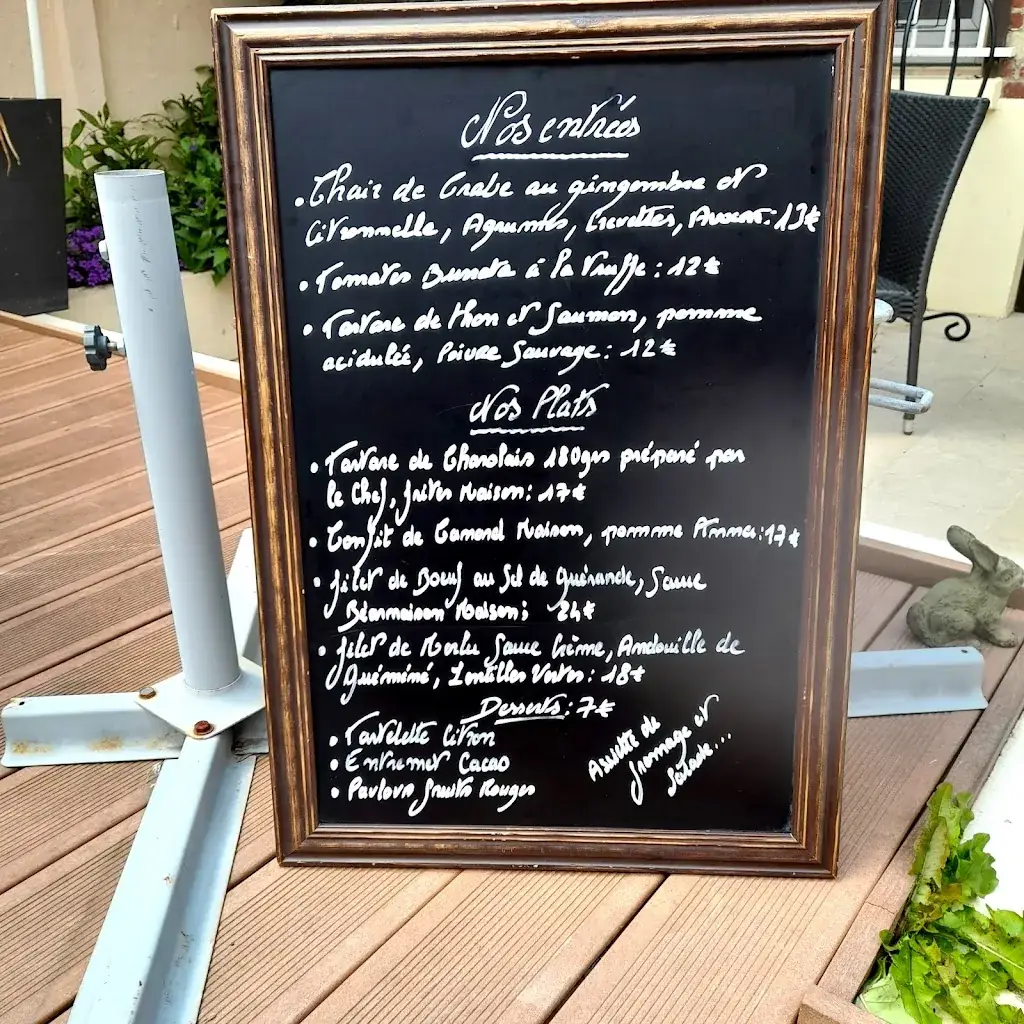 Nos entrées
• Chair de Crabe au gingembre et
Citronnelle, Agrumes, Crevettes, Avocat: 13€
• Tomates Burrata à la Truffe : 12€
• Tartare de thon et Saumon, pomme
acidulée, Poivre Sauvage : 12€
Nos Plats
• Tartare de Charolais 180grs préparé par
le Chef, frites Maison : 17€
• Confit de Canard Maison, pomme Anna : 17€
• filet de Boeuf au Sel de Guérande, Sauce
Béarnaise Maison : 24€
• filet de Merlu Sauce Crème, Andouille de
Guéméné, Lentilles Vertes : 18€
Desserts : 7€
• Tartelette Citron
• Entremet Cacao
• Pavlova fruits Rouges
Assiette de
fromage et
Salade...